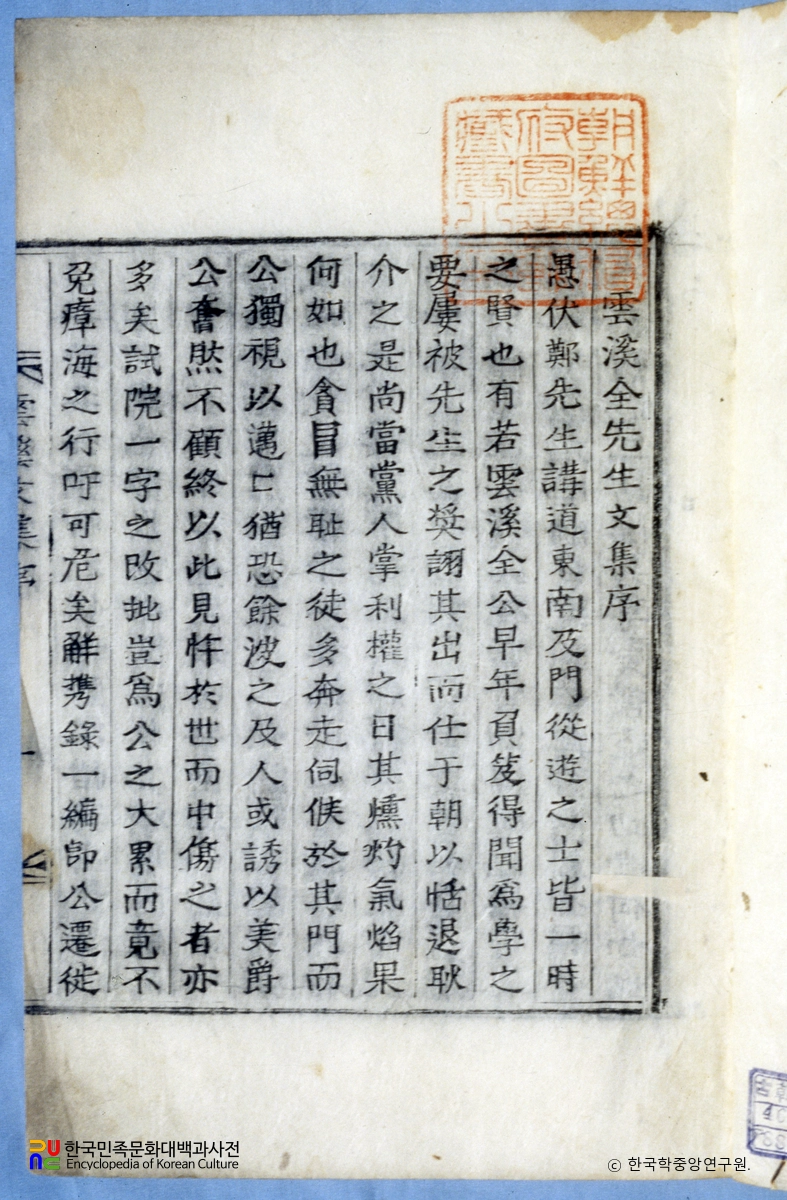 雲溪全先生文集序
愚伏鄭先生講道東南及門從遊之士皆一時
之賢也有若雲溪全公早年負笈得聞爲學之
要屢被先生之奬詡其出而仕于朝以恬退耿
介之是尚當黨人掌利權之日其燻灼氣焰果
何如也貪冒無恥之徒多奔走伺候於其門而
公獨視以邁亡猶恐餘波之及人或誘以美爵
公奮然不顧終以此見忤於世而中傷之者亦
多矣試院一字之改批豈爲公之大累而竟不
免瘴海之行吁可危矣觧携錄一編卽公遷徙
雲溪文集序
一
朝鮮總督府圖書
한국민족문화대백과사전
Encyclopedia of Korean Culture
© 한국학중앙연구원.